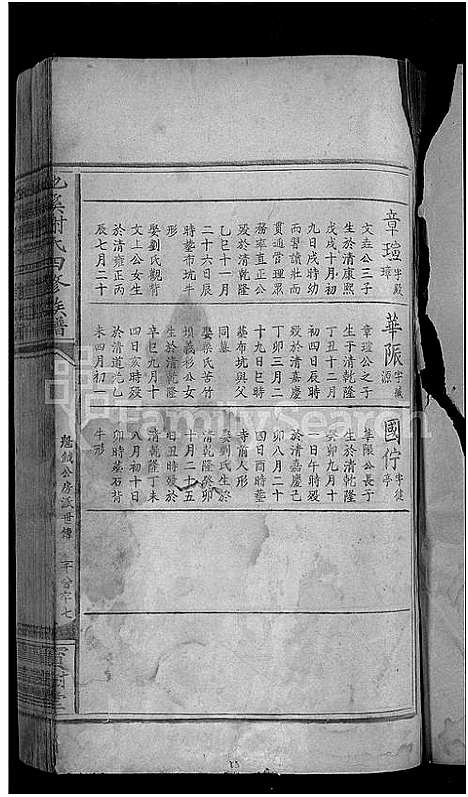 章瑄字殿璋
文垚公三子
生於清康熙
戊戌十月初
九日戌時幼
而習讀壯而
貫通管理眾
務率直正公
歿於清乾隆
乙巳十一月
二十六日辰
時塟布坑牛
形
娶劉氏觀背
文上公女生
於清雍正丙
辰七月二十
華賑字臧源
章瑄公之子
生于清乾隆
丁丑十二月
初四日辰時
歿於清嘉慶
丁卯三月二
十九日巳時
墓布坑與父
同墓
娶梁氏苦竹
坝義杉公女
生於清乾隆
辛巳九月十
四日亥時歿
於清道光乙
未四月初
國佇字徒亭
華賑公長子
生於清乾隆
癸卯九月十
一日午時歿
於清嘉慶己
卯八月二十
四日酉時塟
寺前人形
娶劉氏生於
清乾隆癸卯
十月二十五
日丑時歿於
清乾隆丁未
八月初十日
卯時墓石背
牛形
謝氏四修族譜
公房派世傳
寶樹堂
FamilySearch